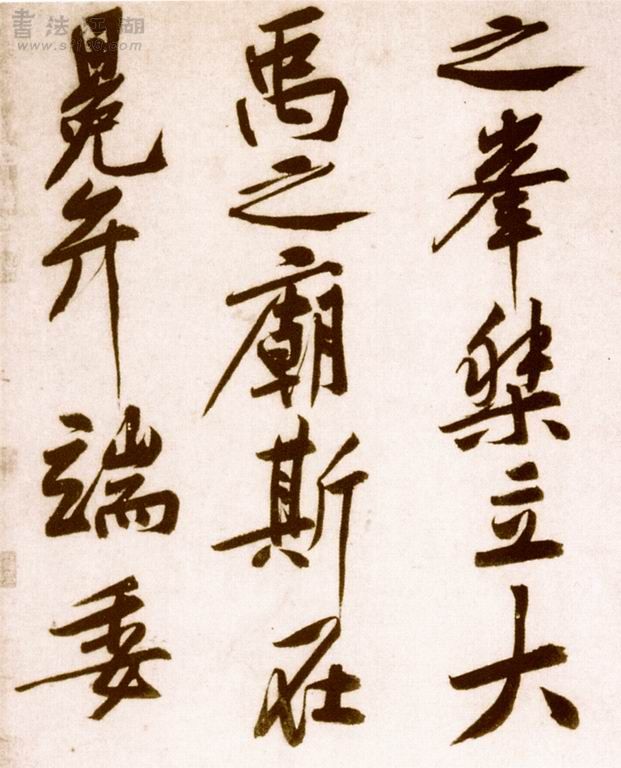 之峯桀立大
禹之廟斯在
冕弁端委
書法江湖
www.sf108.com